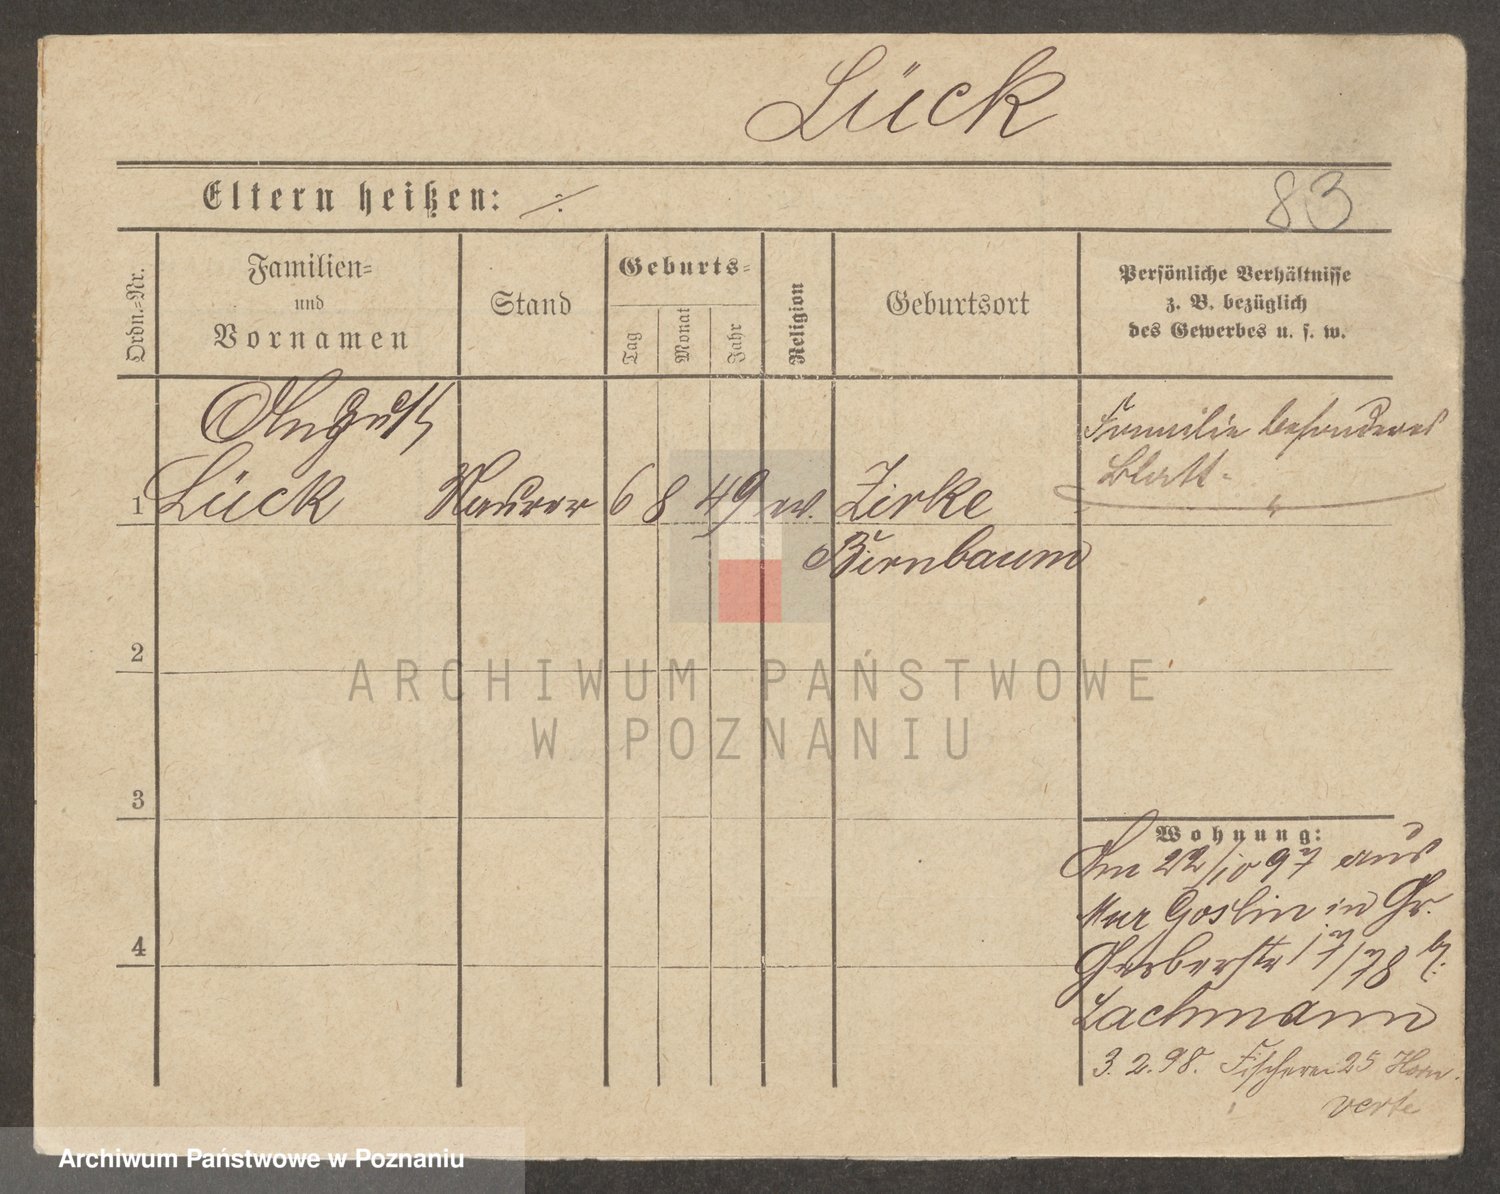 Lück
Eltern heißen: ./.
83
Ordn.=Nr.
Familien=
und
Vornamen
Stand
Geburts=
Tag
Monat
Jahr
Religion
Geburtsort
Persönliche Verhältnisse
z. B. bezüglich
des Gewerbes u. s. w.
August
1 Lück Maurer 6 8 49 ev. Zirke
Birnbaum
Familie besonderes
Blatt.
2
3
4
Wohnung:
Am 22/10 97 aus
Mur Goslin in Gr.
Gerberstr 17/18 b.
Lachmann
3. 2. 98. Fischerei 25 Horn.
verte
ARCHIWUM PAŃSTWOWE
W POZNANIU
Archiwum Państwowe w Poznaniu